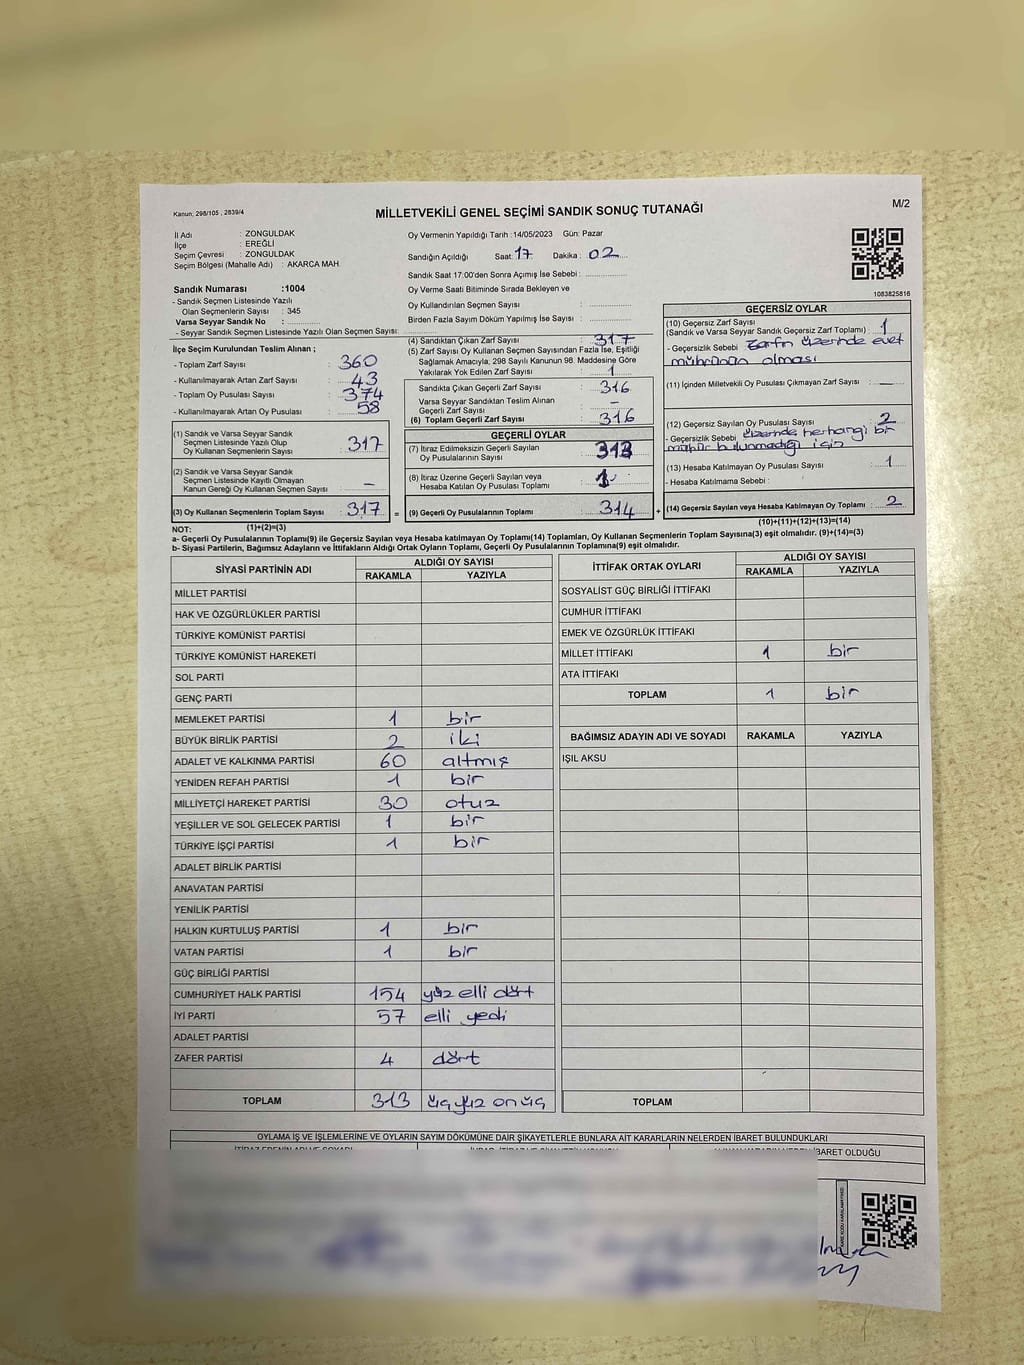 Kanun; 298/105 , 2839/4
MİLLETVEKİLİ GENEL SEÇİMİ SANDIK SONUÇ TUTANAĞI
M/2
İl Adı : ZONGULDAK
İlçe : EREĞLİ
Seçim Çevresi : ZONGULDAK
Seçim Bölgesi (Mahalle Adı) : AKARCA MAH.
Sandık Numarası :1004
- Sandık Seçmen Listesinde Yazılı
Olan Seçmenlerin Sayısı : 345
Varsa Seyyar Sandık No :
- Seyyar Sandık Seçmen Listesinde Yazılı Olan Seçmen Sayısı:
Oy Vermenin Yapıldığı Tarih :14/05/2023 Gün: Pazar
Sandığın Açıldığı Saat: 17 Dakika : 02
Sandık Saat 17:00'den Sonra Açımış İse Sebebi :
Oy Verme Saati Bitiminde Sırada Bekleyen ve
Oy Kullandırılan Seçmen Sayısı :
Birden Fazla Sayım Döküm Yapılmış İse Sayısı :
1083825816
İlçe Seçim Kurulundan Teslim Alınan ;
- Toplam Zarf Sayısı : 360
- Kullanılmayarak Artan Zarf Sayısı : 43
- Toplam Oy Pusulası Sayısı : 374
- Kullanılmayarak Artan Oy Pusulası : 58
(1) Sandık ve Varsa Seyyar Sandık
Seçmen Listesinde Yazılı Olup
Oy Kullanan Seçmenlerin Sayısı : 317
(2) Sandık ve Varsa Seyyar Sandık
Seçmen Listesinde Kayıtlı Olmayan
Kanun Gereği Oy Kullanan Seçmen Sayısı : –
(3) Oy Kullanan Seçmenlerin Toplam Sayısı : 317 =
(4) Sandıktan Çıkan Zarf Sayısı : 317
(5) Zarf Sayısı Oy Kullanan Seçmen Sayısından Fazla İse, Eşitliği
Sağlamak Amacıyla; 298 Sayılı Kanunun 98. Maddesine Göre
Yakılarak Yok Edilen Zarf Sayısı : 1
Sandıkta Çıkan Geçerli Zarf Sayısı : 316
Varsa Seyyar Sandıktan Teslim Alınan
Geçerli Zarf Sayısı : –
(6) Toplam Geçerli Zarf Sayısı : 316
GEÇERLİ OYLAR
(7) İtiraz Edilmeksizin Geçerli Sayılan
Oy Pusulalarının Sayısı : 313
(8) İtiraz Üzerine Geçerli Sayılan veya
Hesaba Katılan Oy Pusulası Toplamı : 1
(9) Geçerli Oy Pusulalarının Toplamı : 314 +
GEÇERSİZ OYLAR
(10) Geçersiz Zarf Sayısı
(Sandık ve Varsa Seyyar Sandık Geçersiz Zarf Toplamı) : 1
- Geçersizlik Sebebi : Zarfın üzerinde evet
mührünün olması
(11) İçinden Milletvekili Oy Pusulası Çıkmayan Zarf Sayısı : –
(12) Geçersiz Sayılan Oy Pusulası Sayısı : 2
- Geçersizlik Sebebi : üzerinde herhangi bir
mühür bulunmadığı için
(13) Hesaba Katılmayan Oy Pusulası Sayısı : 1
- Hesaba Katılmama Sebebi :
(14) Geçersiz Sayılan veya Hesaba Katılmayan Oy Toplamı : 2
NOT: (1)+(2)=(3)
(10)+(11)+(12)+(13)=(14)
a- Geçerli Oy Pusulalarının Toplamı(9) ile Geçersiz Sayılan veya Hesaba katılmayan Oy Toplamı(14) Toplamları, Oy Kullanan Seçmenlerin Toplam Sayısına(3) eşit olmalıdır. (9)+(14)=(3)
b- Siyasi Partilerin, Bağımsız Adayların ve İttifakların Aldığı Ortak Oyların Toplamı, Geçerli Oy Pusulalarının Toplamına(9) eşit olmalıdır.
SİYASİ PARTİNİN ADI ALDIĞI OY SAYISI
RAKAMLA YAZIYLA
MİLLET PARTİSİ
HAK VE ÖZGÜRLÜKLER PARTİSİ
TÜRKİYE KOMÜNİST PARTİSİ
TÜRKİYE KOMÜNİST HAREKETİ
SOL PARTİ
GENÇ PARTİ
MEMLEKET PARTİSİ 1 bir
BÜYÜK BİRLİK PARTİSİ 2 iki
ADALET VE KALKINMA PARTİSİ 60 altmış
YENİDEN REFAH PARTİSİ 1 bir
MİLLİYETÇİ HAREKET PARTİSİ 30 otuz
YEŞİLLER VE SOL GELECEK PARTİSİ 1 bir
TÜRKİYE İŞÇİ PARTİSİ 1 bir
ADALET BİRLİK PARTİSİ
ANAVATAN PARTİSİ
YENİLİK PARTİSİ
HALKIN KURTULUŞ PARTİSİ 1 bir
VATAN PARTİSİ 1 bir
GÜÇ BİRLİĞİ PARTİSİ
CUMHURİYET HALK PARTİSİ 154 yüz elli dört
İYİ PARTİ 57 elli yedi
ADALET PARTİSİ
ZAFER PARTİSİ 4 dört
TOPLAM 313 üç yüz on üç
İTTİFAK ORTAK OYLARI ALDIĞI OY SAYISI
RAKAMLA YAZIYLA
SOSYALİST GÜÇ BİRLİĞİ İTTİFAKI
CUMHUR İTTİFAKI
EMEK VE ÖZGÜRLÜK İTTİFAKI
MİLLET İTTİFAKI 1 bir
ATA İTTİFAKI
TOPLAM 1 bir
BAĞIMSIZ ADAYIN ADI VE SOYADI RAKAMLA YAZIYLA
IŞIL AKSU
TOPLAM
OYLAMA İŞ VE İŞLEMLERİNE VE OYLARIN SAYIM DÖKÜMÜNE DAİR ŞİKAYETLERLE BUNLARA AİT KARARLARIN NELERDEN İBARET BULUNDUKLARI
İBARET OLDUĞU